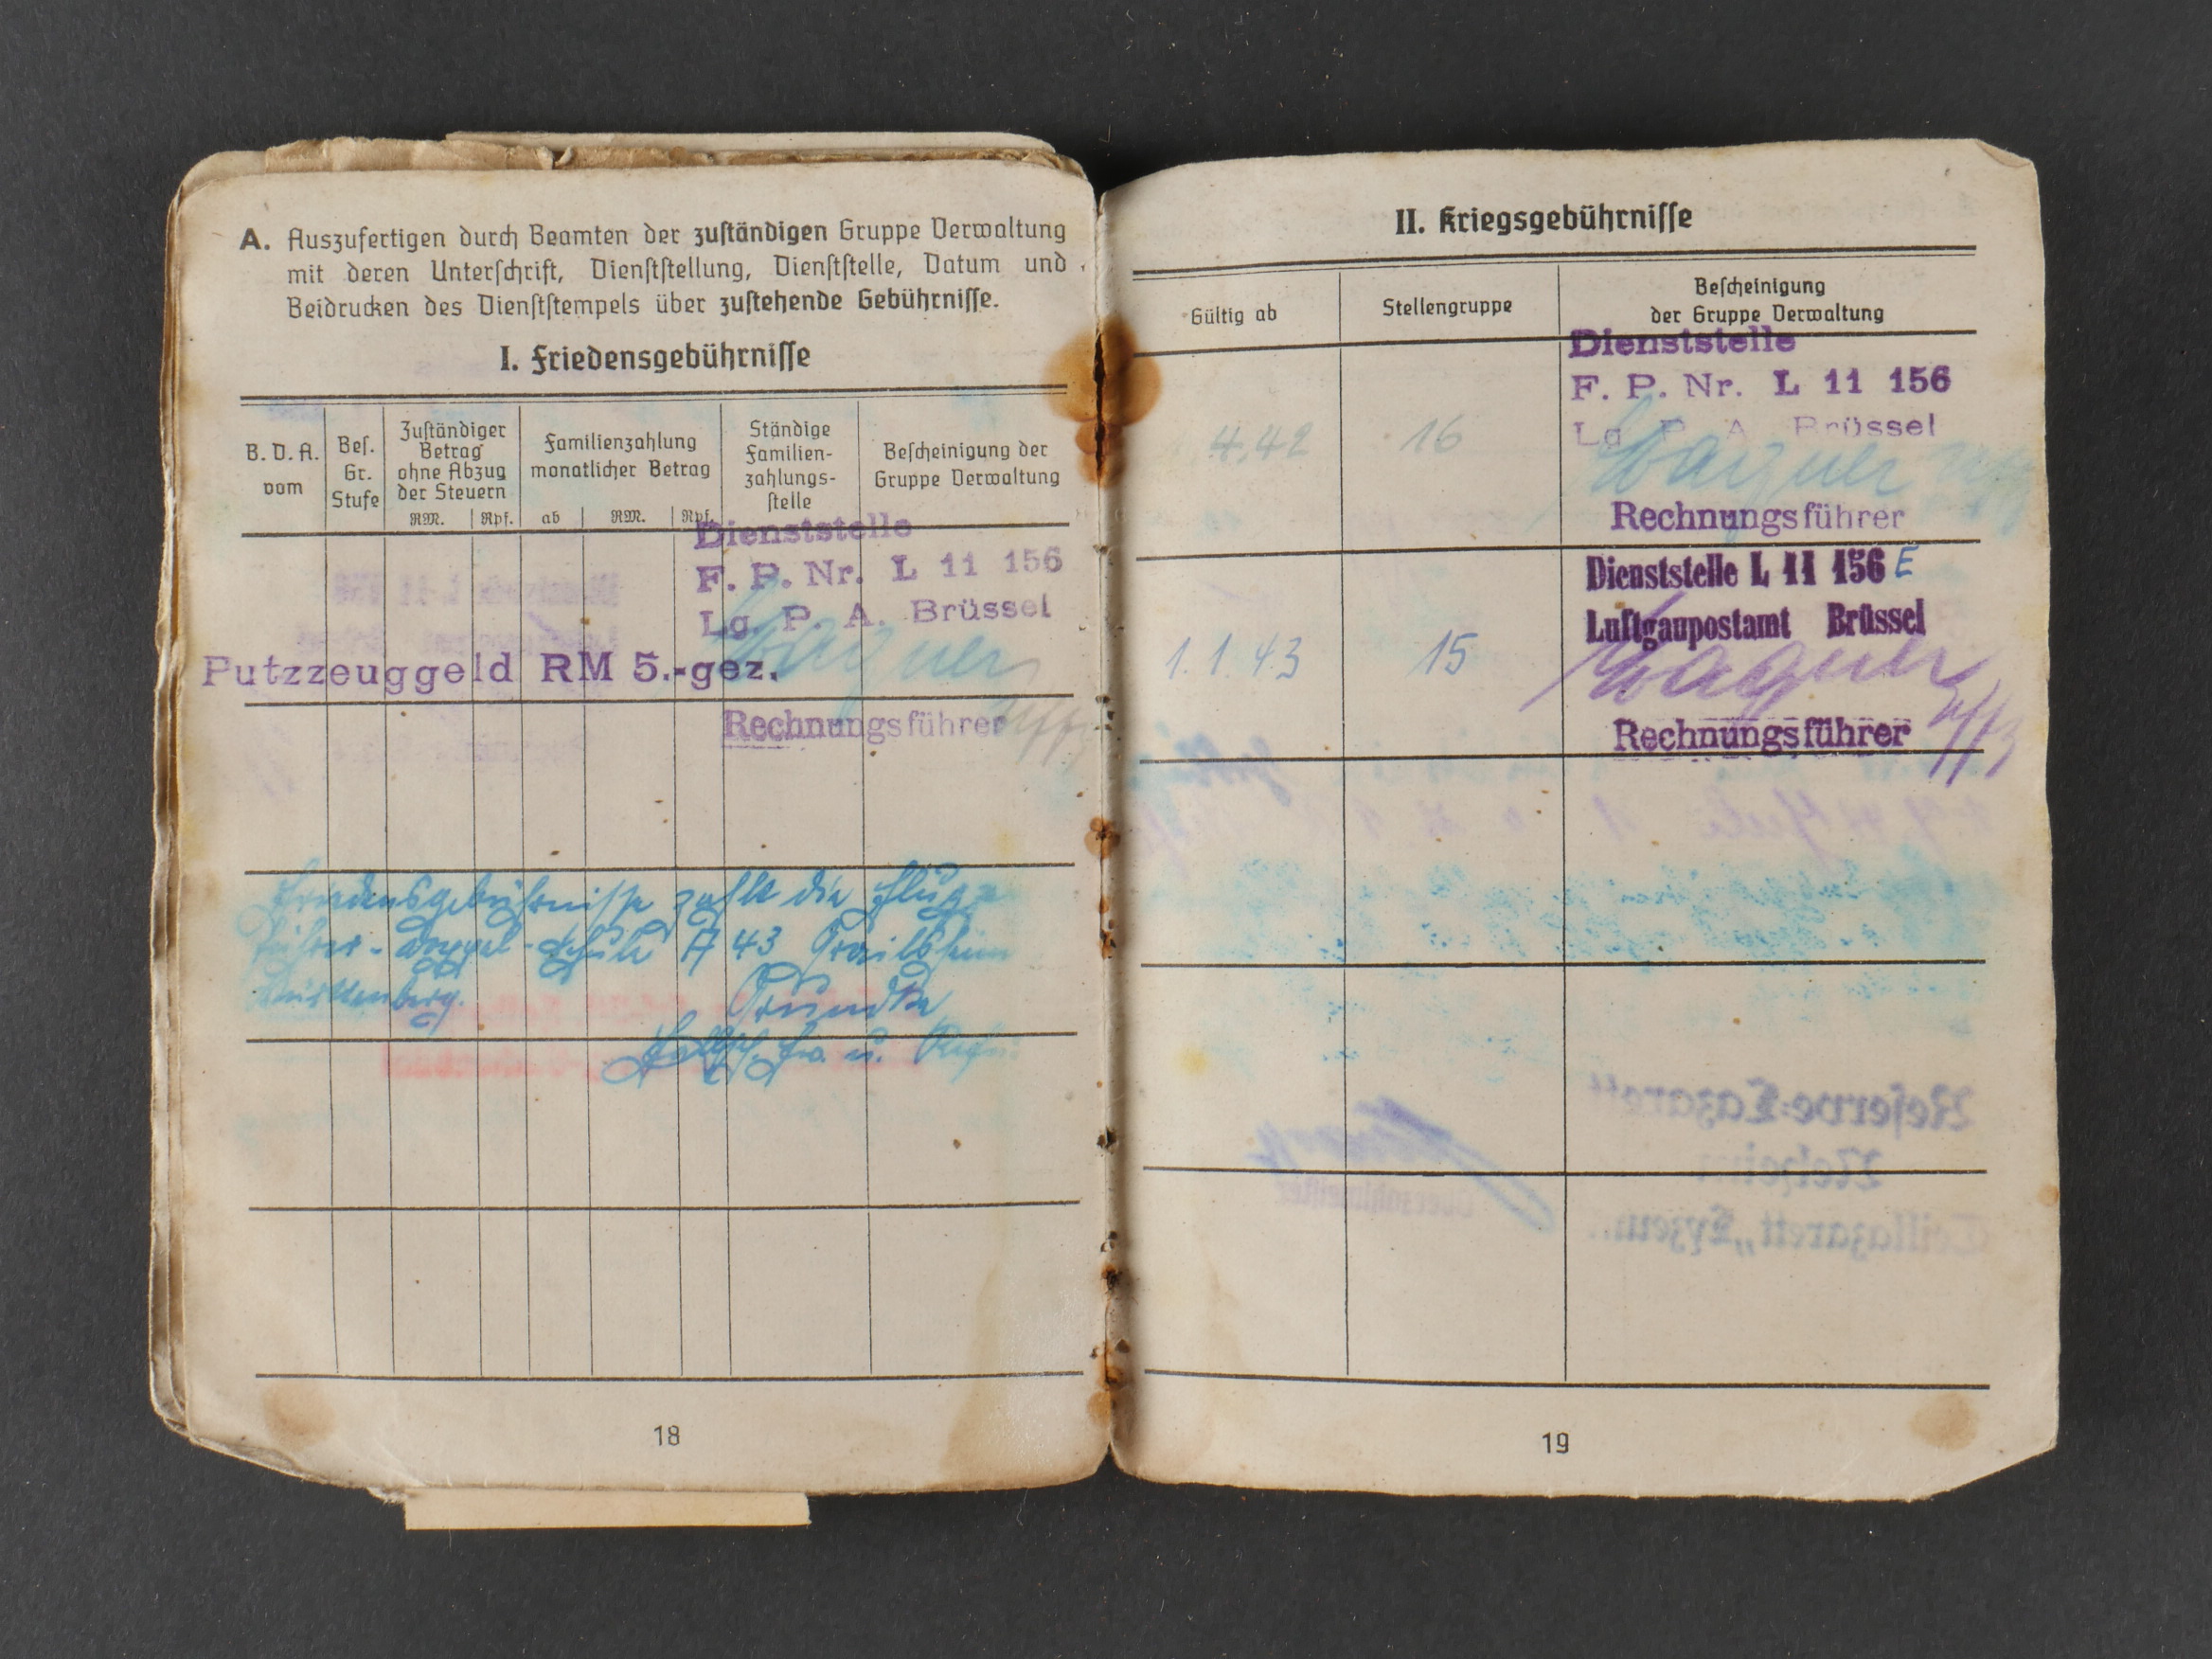 A. Auszufertigen durch Beamten der zuständigen Gruppe Verwaltung
mit deren Unterschrift, Dienststellung, Dienststelle, Datum und
Beidrucken des Dienststempels über zustehende Gebührnisse.
I. Friedensgebührnisse
B. D. A. vom
Bes. Gr. Stufe
Zuständiger Betrag ohne Abzug der Steuern
RM. Rpf.
Familienzahlung monatlicher Betrag
ab RM. Rpf.
Ständige Familien-zahlungs-stelle
Bescheinigung der Gruppe Verwaltung
Dienststelle
F. P. Nr. L 11 156
Lg. P. A. Brüssel
Wagner
Putzzeuggeld RM 5.-gez.
Rechnungsführer Uffz
Friedensgebührnisse zahlt die Flug-
führer-Doppel-Schule A 43 Crailsheim
Württenberg.
18
II. Kriegsgebührnisse
Gültig ab
Stellengruppe
Bescheinigung
der Gruppe Verwaltung
Dienststelle
F. P. Nr. L 11 156
Lg P A Brüssel
4.42 16 Wagner
Rechnungsführer
Dienststelle L 11 156 E
Luftgaupostamt Brüssel
1.1.43 15 Wagner
Rechnungsführer Uffz
Reserve-Lazarett
Oberzahlmeister
Teillazarett „Lyzeum"
19